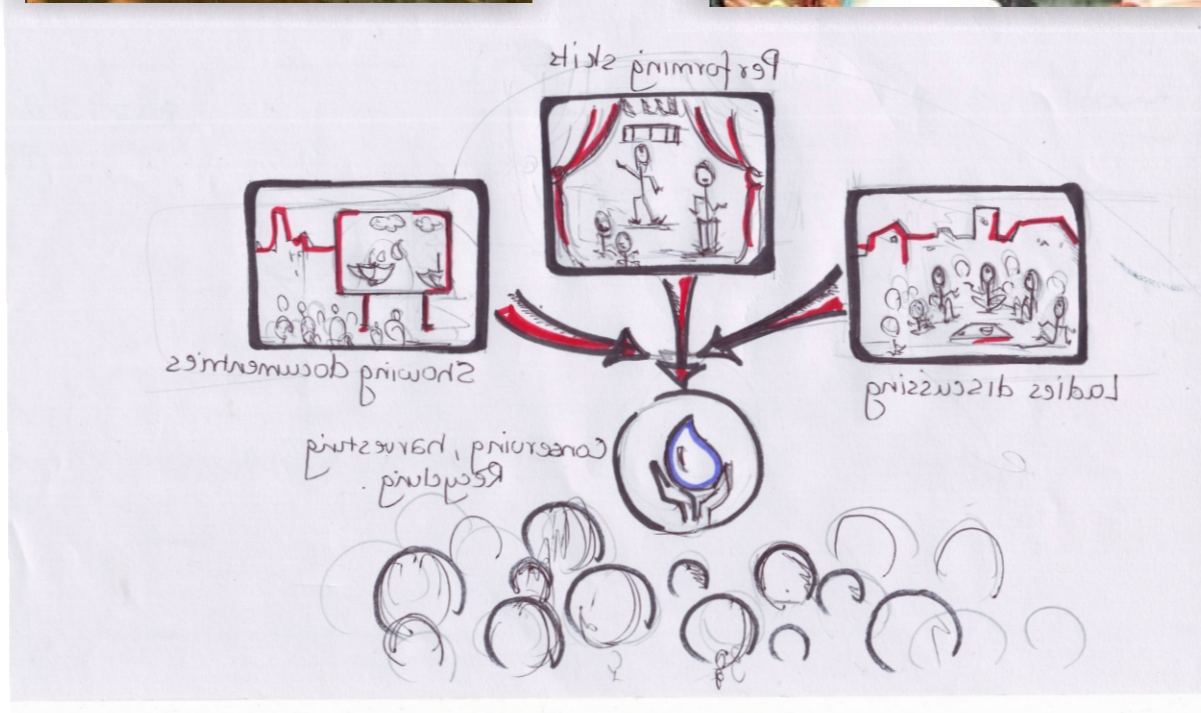 Performing skits
Showing documentries
Ladies discussing
Conserving, harvesting
Recycling.